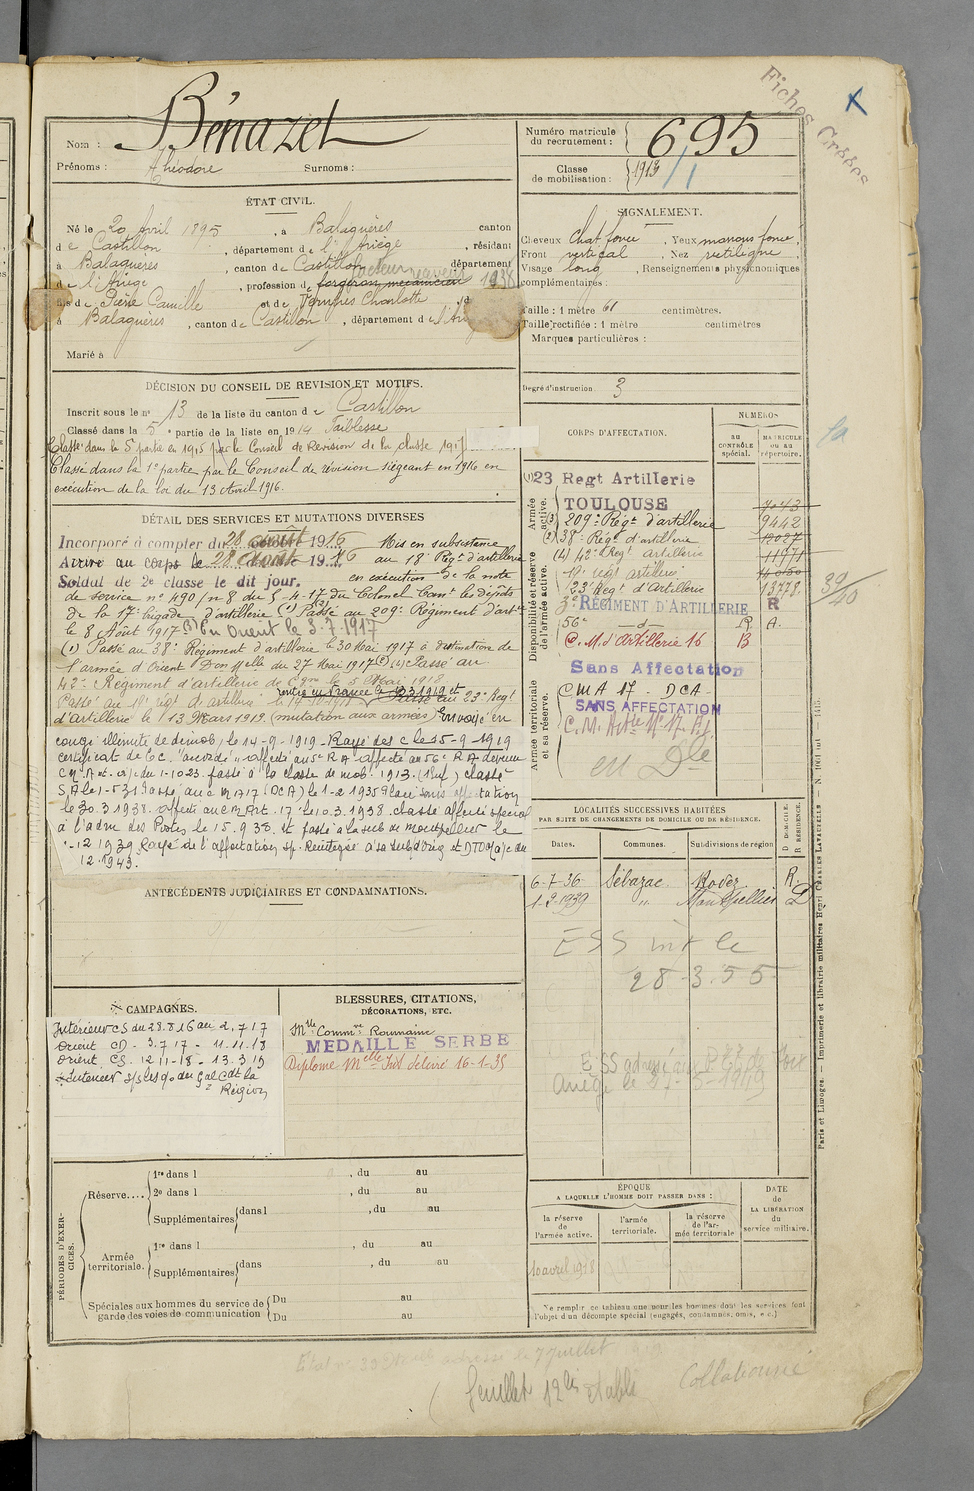 Fiches Crasses
Nom : Bénazet
Prénoms : Théodore Surnoms :
Numéro matricule du recrutement : 695
Classe de mobilisation : 1913
ÉTAT CIVIL.
Né le 20 Avril 1895, à Balaguères canton
de Castillon, département de l'Ariège, résidant
à Balaguères, canton de Castillon département
de l'Ariège, profession de forgeron mécanicien facteur 1938
fils de Pierre Camille et de Charlotte
à Balaguères, canton de Castillon, département de l'Ari
Marié à
SIGNALEMENT.
Cheveux chat. foncé, Yeux marrons foncé,
Front vertical, Nez rectiligne,
Visage long, Renseignements physionomiques
complémentaires :
Taille : 1 mètre 61 centimètres.
Taille rectifiée : 1 mètre centimètres
Marques particulières :
Degré d'instruction 3
DÉCISION DU CONSEIL DE REVISION ET MOTIFS.
Inscrit sous le n° 13 de la liste du canton de Castillon
Classé dans la 5e partie de la liste en 1914 Faiblesse
Classé dans la 5 partie en 1915 par le Conseil de Revision de la classe 191
Classé dans la 1e partie par le Conseil de révision siégeant en 1916 en
exécution de la loi du 13 Avril 1916.
DÉTAIL DES SERVICES ET MUTATIONS DIVERSES
Incorporé à compter du 28 août 1916 Mis en subsistance
Arrivé au corps le 28 août 1916 au 18e Régt d'artillerie
Soldat de 2e classe le dit jour. en exécution de la note
de service n° 490/n 8 du 5-4-17 du Colonel Comt les dépôts
de la 17e brigade d'artillerie (1) Passé au 209e Régiment d'art
le 8 Août 1917 (3) En Orient le 3-7-1917
(1) Passé au 38e Régiment d'artillerie le 30 Mai 1917 à destination de
l'armée d'Orient Don Melle du 27 Mai 1917 (4) Passé au
42e Régiment d'artillerie de Cgne le 5 Mai 1918
Passé au régt d'artillerie le rentré en France le 13.3.1919 et Passé au 23e Régt
d'artillerie le 13 Mars 1919 (mutation aux armées) Envoyé en
congé illimité de démob. le 14-9-1919 Rayé des C le 15-9-1919
certificat de B.C. "accordé" affecté au 3e R.A. affecté au 56e R.A devenu
C.M.A. 16 du 1-10-23. passé à la classe de mob. 1913. classé
SA le 1-5-31 Passé au C M A 17 (DCA) le 1-2-1935 Placé sans affectation
le 30.3.1938. affecté au C M Art. 17 le 10.3.1938. classé affecté spécial
à l'adm des Postes le 15.9.38. et passé à la sub de Montpellier le
1-12 1939 Rayé de l'affectation sp. Réintégré à sa subd d'orig et
12.1943.
ANTÉCÉDENTS JUDICIAIRES ET CONDAMNATIONS.
CORPS D'AFFECTATION.
NUMÉROS
au CONTRÔLE spécial.
MATRICULE ou au répertoire.
Armée active.
Disponibilité et réserve de l'armée active.
Armée territoriale et sa réserve.
(1) 23 Regt Artillerie
TOULOUSE
(3) 209e Régt d'artillerie 9442
(2) 38e Régt d'artillerie 13027
(4) 42e Régt artillerie 11971
régt artillerie
23e Régt d'artillerie 13778
3e RÉGIMENT D'ARTILLERIE R
56e —d— R A.
C.M. d'Artillerie 16 B
Sans Affectation
CMA 17 - DCA
SANS AFFECTATION
C.M. Artie N° 17
en Dle
39/40
LOCALITÉS SUCCESSIVES HABITÉES
PAR SUITE DE CHANGEMENTS DE DOMICILE OU DE RÉSIDENCE.
Dates. Communes. Subdivisions de région D DOMICILE. R RÉSIDENCE.
6-7-36 Sébazac Rodez R.
1-2-1939 " Montpellier D
ESS int le
28-3.55
ESS adressé au
Ariège le 27-5-1949
CAMPAGNES.
Intérieur CS du 28.8.16 au 2.7.17
Orient CD - 3.7.17 - 11.11.18
Orient CS. 12.11-18 - 13.3.19
Intérieur Gal Cdt la
Région
BLESSURES, CITATIONS, DÉCORATIONS, ETC.
Mlle Commve Roumaine
MEDAILLE SERBE
Diplôme Melle délivré 16-1-35
PÉRIODES D'EXERCICES.
Réserve.... 1re dans l , du au
2e dans l , du au
Supplémentaires dans l , du au
Armée territoriale. 1re dans l , du au
Supplémentaires dans , du au
Spéciales aux hommes du service de garde des voies de communication Du au
Du au
ÉPOQUE
A LAQUELLE L'HOMME DOIT PASSER DANS :
la réserve de l'armée active. l'armée territoriale. la réserve de l'armée territoriale
DATE de LA LIBÉRATION du service militaire.
10 avril 1918
Ne remplir ce tableau que pour les hommes dont les services font
l'objet d'un décompte spécial (engagés, condamnés, omis, etc.)
Paris et Limoges. — Imprimerie et librairie militaires Henri CHARLES-LAVAUZELLE
adressé le 7 juillet
feuillet 12 établi
Collationné